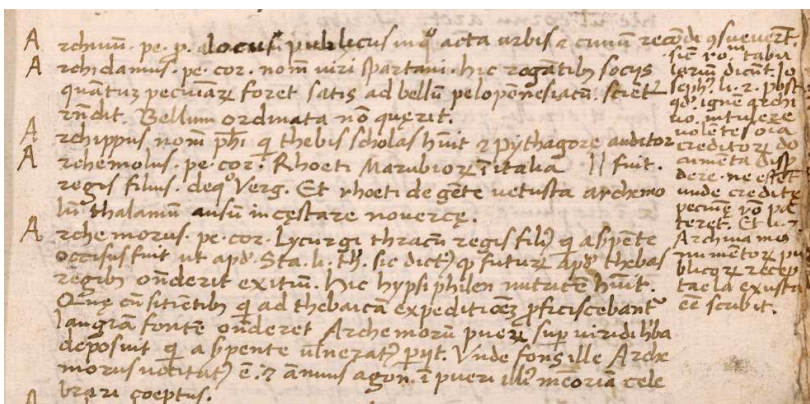 Archiuũ. pe. p. a. locus publicus in q̊ acta urbis ⁊ ciuiũ recõdi ↄsueuert̃.
Archidamus. pe. cor. nom̃ uiri spartani. hic rogãtib9 socijs
quãtuȝ pecuniaꝝ foret satis ad bellũ peloponẽsiacũ. scient̃
rñdit. Bellum ordinata nõ querit.
Archippus nom̃ phĩ q̃ thebis scholas hũit ⁊ pythagorę auditor
fuit.
Archemolus. pe. cor. Rhoeti Marubioꝝ ĩ italia
regis filius. de q̊ Verg. Et rhoeti de gẽte uetusta archemo
lũ thalamũ ausũ incęstare nouercę.
Archemorus. pe. cor. Lycurgi thracũ regis fili9 q̃ a spẽnte
occisus fuit ut apḋ. Sta. li. th̃. sic dict9 ꝙ futuꝝ apḋ thebas
regib9 oñderit exitiũ. Hic hypsiphilen nutricẽ hũit.
Quę cũ sitientib9 q̃ ad thebaicã expeditiõeȝ ꝓficiscebant̃
langiam fontẽ oñderet Archemorũ pueꝝ sup uiridi h̃ba
deposuit q̃ a spẽnte uulnerat9 ꝑijt. Vnde fons ille Arche
morus uocitat9 ẽ. ⁊ ãnuus agon. ĩ pueri illi9 mẽoriã cele
brari cœptus.
sicut̃ ro. tabu
lariũ dicũt. Jo
seph9. li. 2. postq̃
qḋ. ignẽ archi
uo. intulere
uolẽtes oĩa
creditoꝝ do
cumẽta dispẽ
dere. ne esset
unde creditę
pecunię rõ pa
teret. Et li. 7.
Archiua mo
numẽtoꝝ pu
blicoꝝ recep
tacla exusta
eẽ scribit.